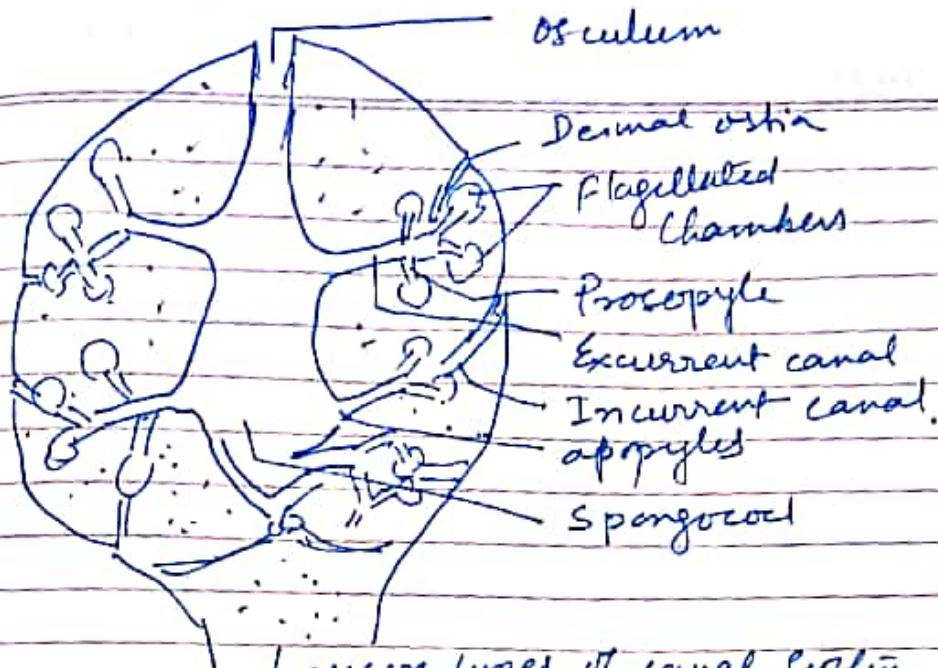 Osculum
Dermal ostia
Flagellated
Chambers
Prosopyle
Excurrent canal
Incurrent canal.
apopyles
Spongocoel
types of canal